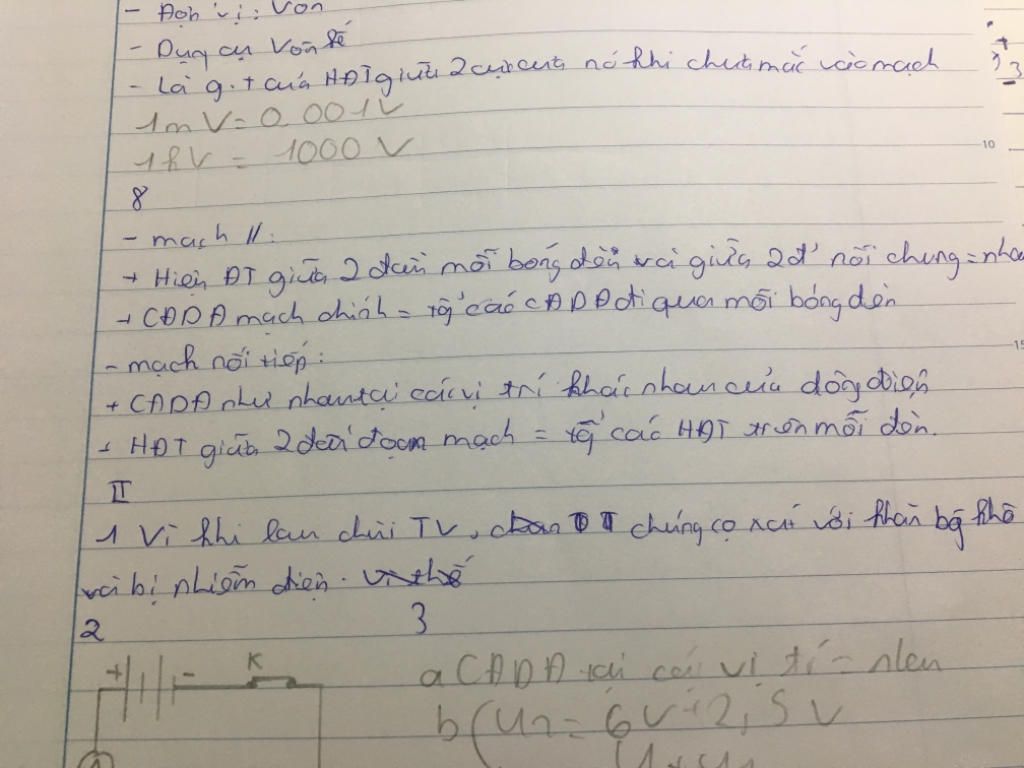 - Đơn vị: Vôn
- Dụng cụ Vôn kế
- Là g.t của HĐT giữa 2 cực của nó khi chưa mắc vào mạch
1mV = 0,001V
1kV = 1000 V
10
8
- mạch //:
+ Hiệu ĐT giữa 2 đầu mỗi bóng đèn và giữa 2 đ' nối chung = nha
+ CĐDĐ mạch chính = tổng các CĐDĐ đi qua mỗi bóng đèn
15
- mạch nối tiếp:
+ CĐDĐ như nhau tại các vị trí khác nhau của dòng điện
+ HĐT giữa 2 đầu đoạn mạch = tổng các HĐT trên mỗi đèn.
II
1 Vì khi lau chùi TV, chúng cọ xát với khăn bông khô
và bị nhiễm điện. vì thế
2 3
+ - K
a CĐDĐ tại các vị trí = nhau
b (U2 = 6V 2,5V